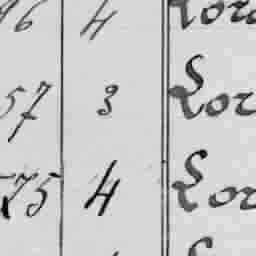 4 Lor
57 3 Lor
75 4 Lor